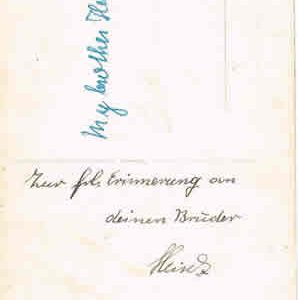 My brother He
Zur frl. Erinnerung an
deinen Bruder
Heinz